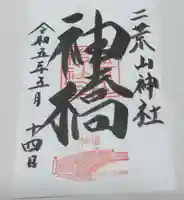 二荒山神社
神橋
令和五年五月
十四日